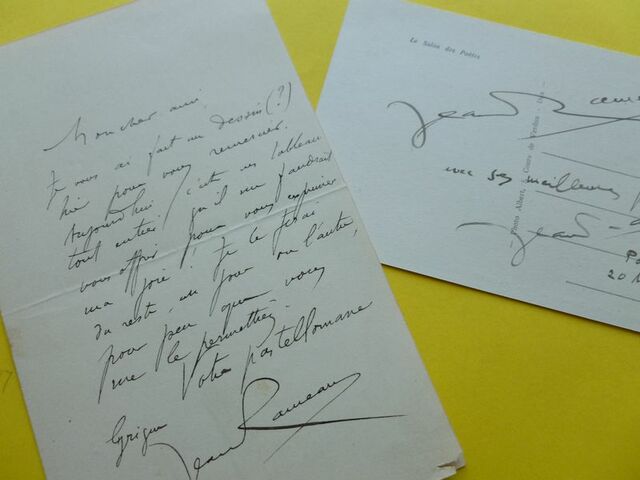 Mon cher ami,
Je vous ai fait un dessin (?)
hier pour vous remercier.
Aujourd'hui c'est un tableau
tout entier qu'il me faudrait
vous offrir pour vous exprimer
ma joie. Je le ferai
du reste, un jour ou l'autre,
pour peu que vous
me le permettiez.
Votre pastellomane
Lyrique
Jean Rameau
Le Salon des Poètes
Jean Rameau
avec ses meilleures
Jean
20
Photo Albert, Cours de Verdun - Dax